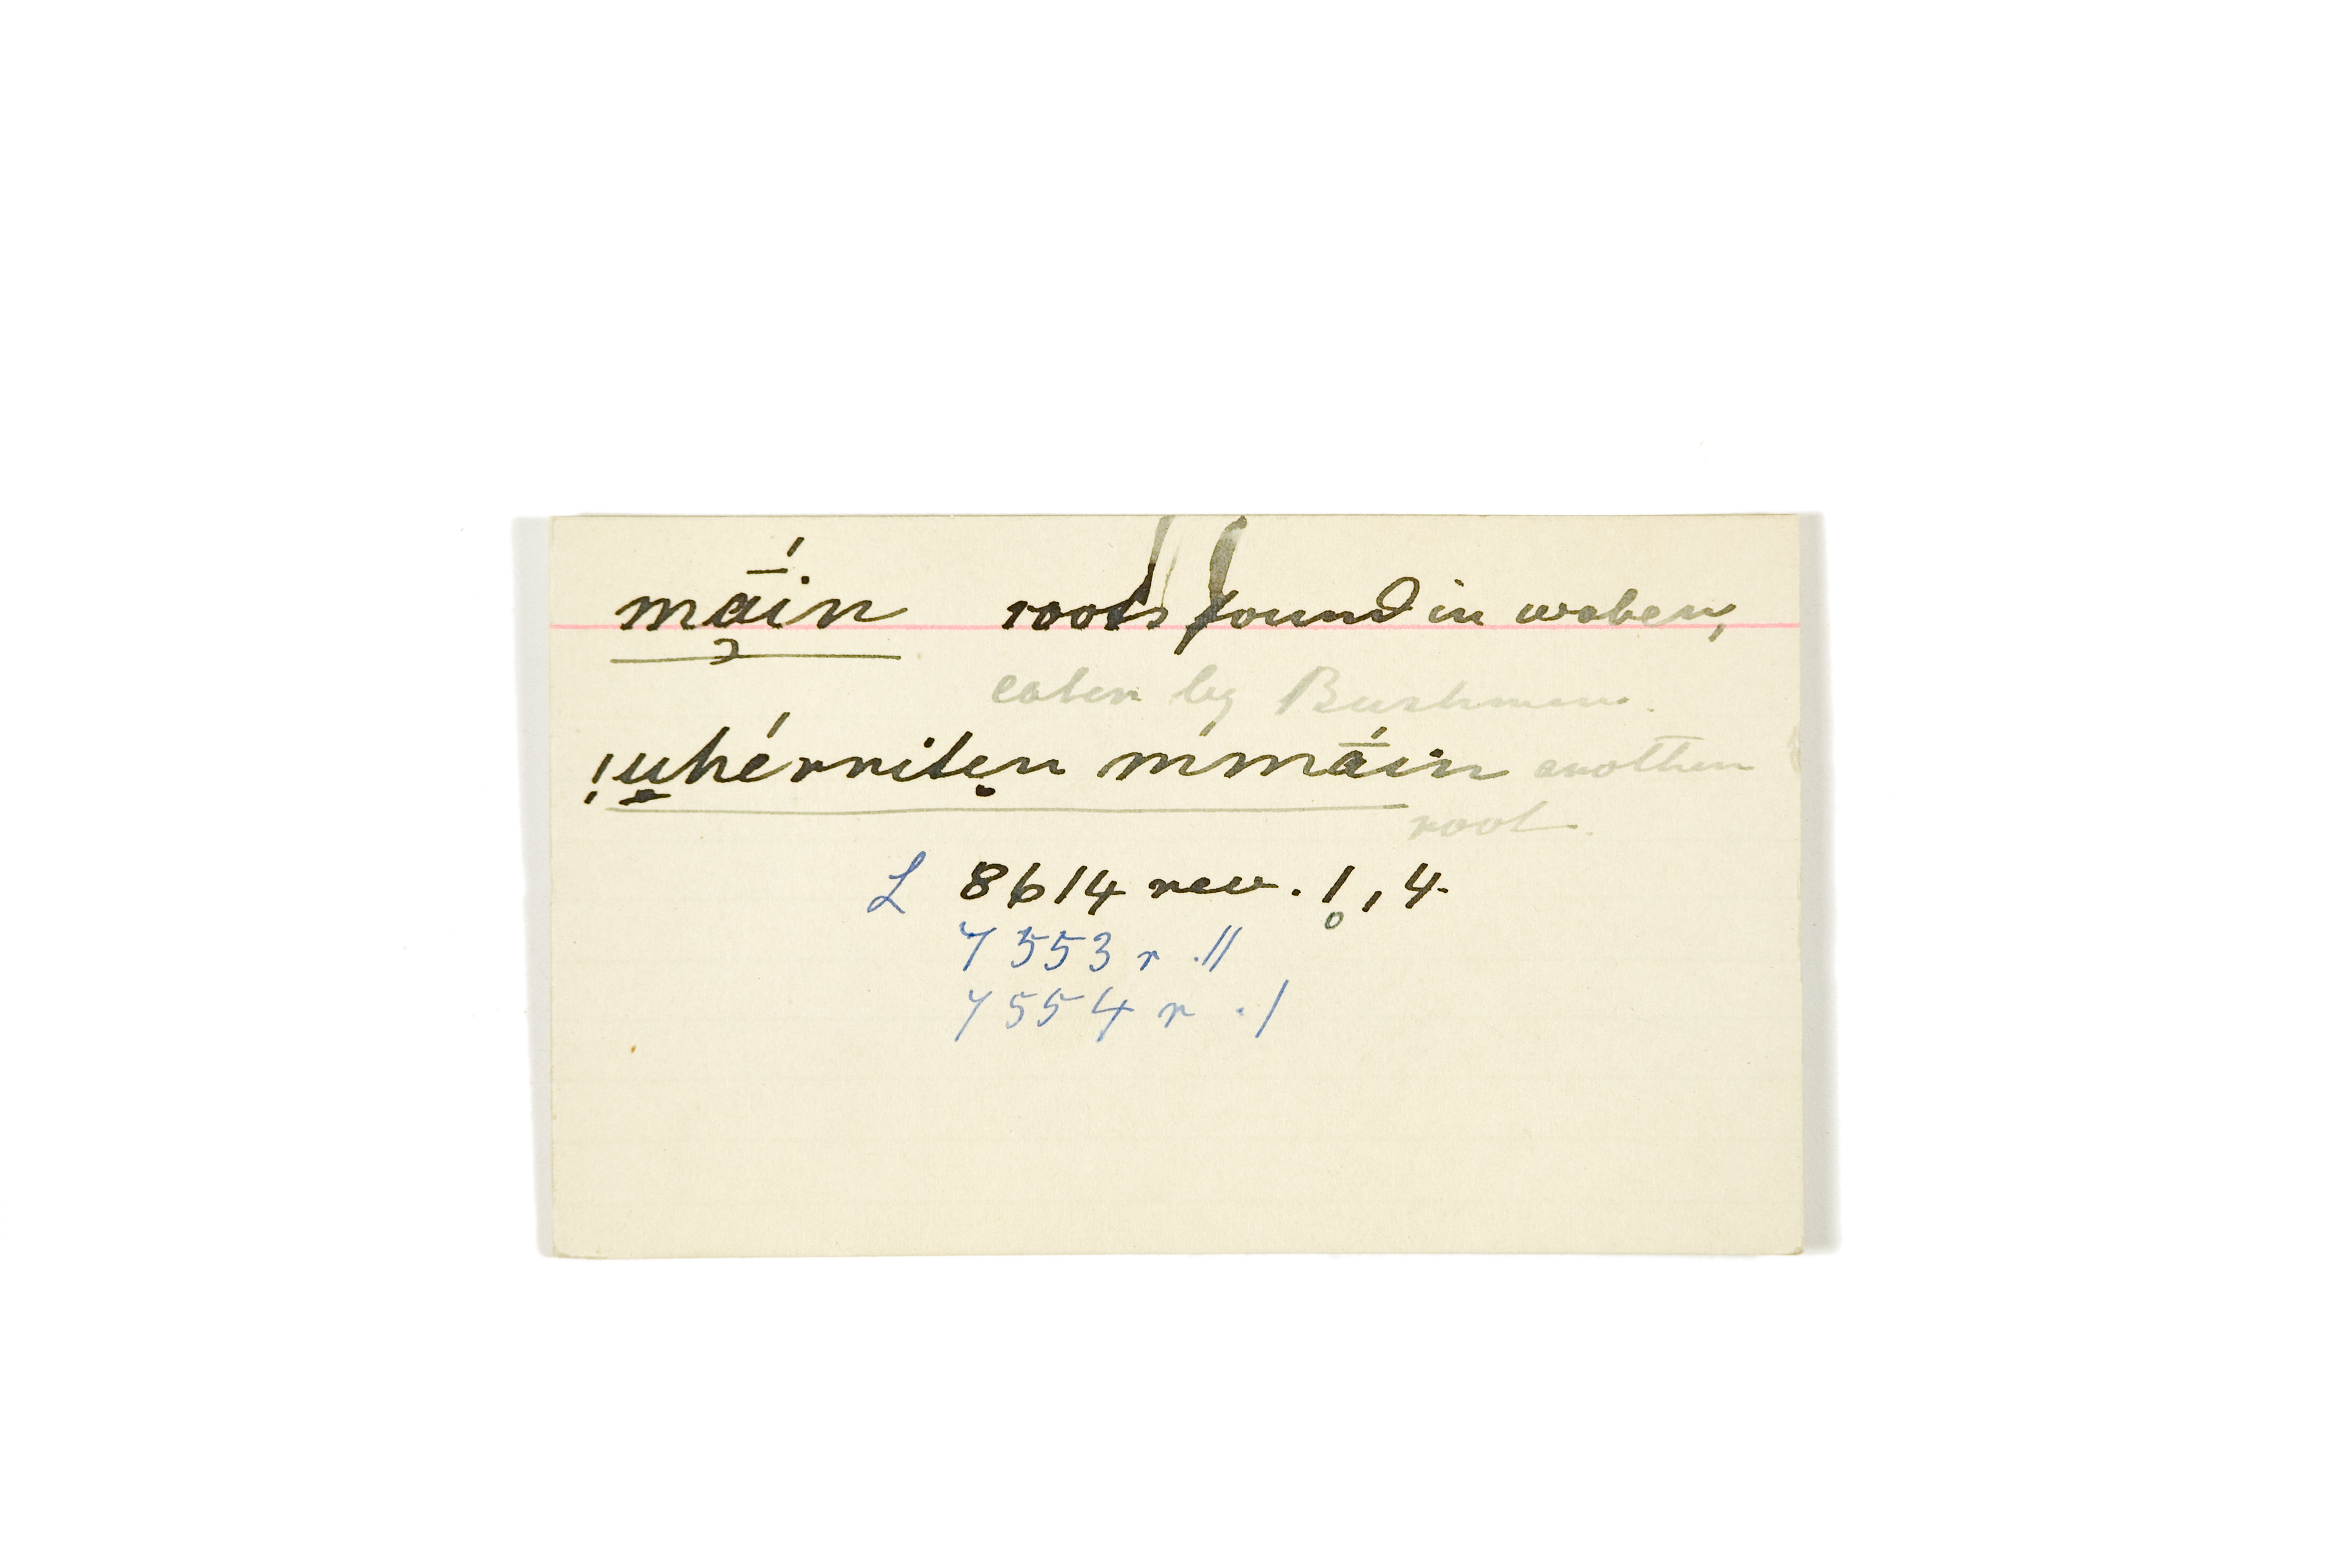 mā́in roots found in water,
eaten by Bushmen.
!u̳hérriten̩ m'mā́in another
root.
L 8614 rev. !̥, 4.
7553 r .//
7554 r ./